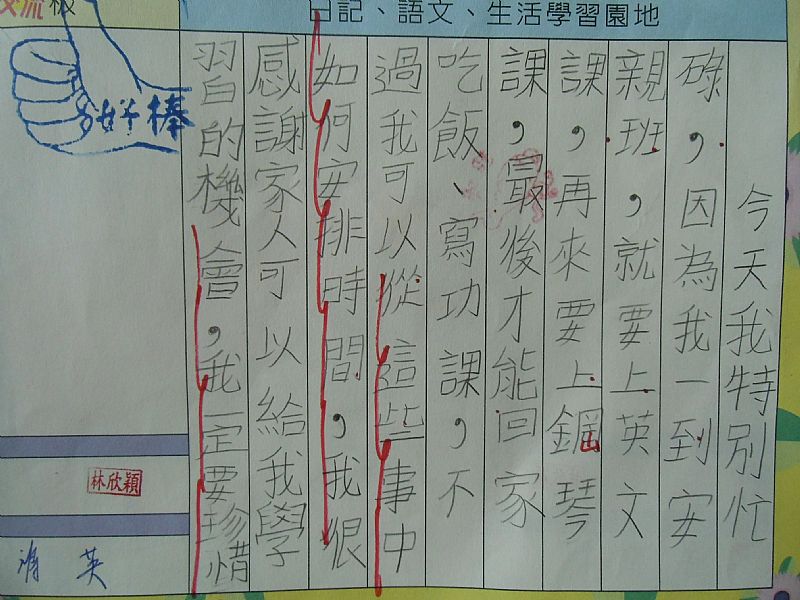 交流板
日記、語文、生活學習園地
今天我特別忙
碌，因為我一到安
親班，就要上英文
課，再來要上鋼琴
課，最後才能回家
吃飯、寫功課，不
過我可以從這些事中
如何安排時間，我很
感謝家人可以給我學
習的機會，我一定要珍惜
好棒
林欣穎
英